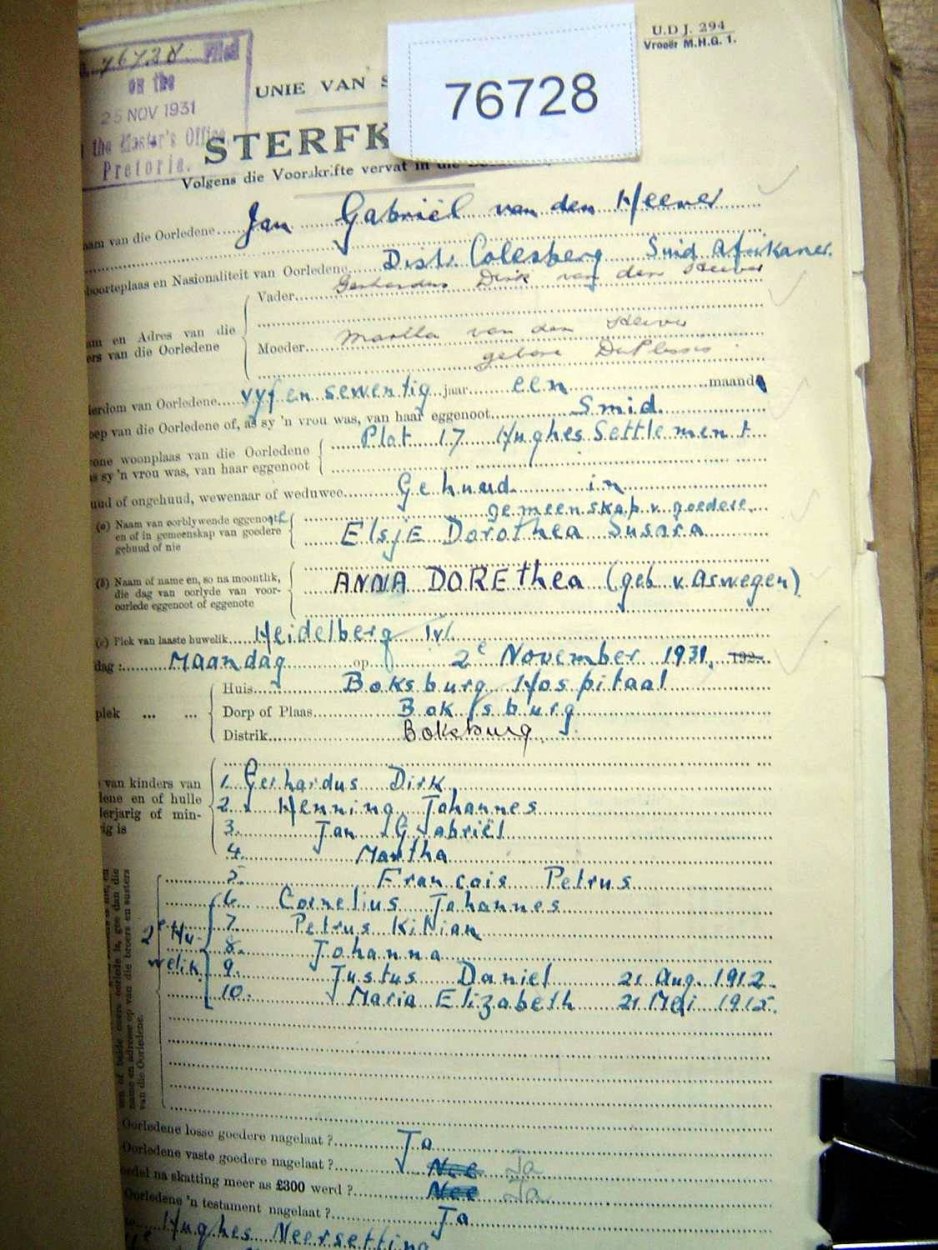 76728 Filed
on the
25 NOV 1931
the Master's Office
Pretoria.
U.D.J. 294
Vroeër M.H.G. 1.
76728
UNIE VAN S
STERFK
Volgens die Voorskrifte vervat in die
aam van die Oorledene Jan Gabriël van den Heever
boorteplaas en Nasionaliteit van Oorledene Distr. Colesberg Suid Afrikaner.
Vader Gerhardus Dirk van den Heever
am en Adres van die
ers van die Oorledene
Moeder Martha van den Heever
gebore Du Plessis
derdom van Oorledene vyf en sewentig jaar een maand
oep van die Oorledene of, as sy 'n vrou was, van haar eggenoot Smid.
one woonplaas van die Oorledene Plot 17 Hughes Settlement
s sy 'n vrou was, van haar eggenoot
uud of ongehuud, wewenaar of weduwee Gehuud in
gemeenskap v. goedere.
(a) Naam van oorblywende eggenoot
en of in gemeenskap van goedere
gehuud of nie
Elsje Dorothea Susara
(b) Naam of name en, so na moontlik,
die dag van oorlyde van voor-
oorlede eggenoot of eggenote
ANNA DOREthea (geb v. Aswegen)
(c) Plek van laaste huwelik Heidelberg Tvl
dag: Maandag op 2e November 1931, 192
Huis Boksburg Hospitaal
plek ... ... Dorp of Plaas Boksburg
Distrik Boksburg.
van kinders van
lene en of hulle
derjarig of min-
ig is
1. Gerhardus Dirk
2. Henning Johannes
3. Jan Gabriël
4. Martha
5. Francois Petrus
6. Cornelius Johannes
7. Petrus Kilian
2e Hu-
welik
8. Johanna
9. Justus Daniel 21 Aug. 1912.
10. Maria Elizabeth 21 Mei 1915.
name en adresse op van die broers en susters
van die Oorledene.
Oorledene losse goedere nagelaat? Ja
Oorledene vaste goedere nagelaat? Nee Ja
oedel na skatting meer as £300 werd? Nee Ja
Oorledene 'n testament nagelaat? Ja
Hughes Neersetting